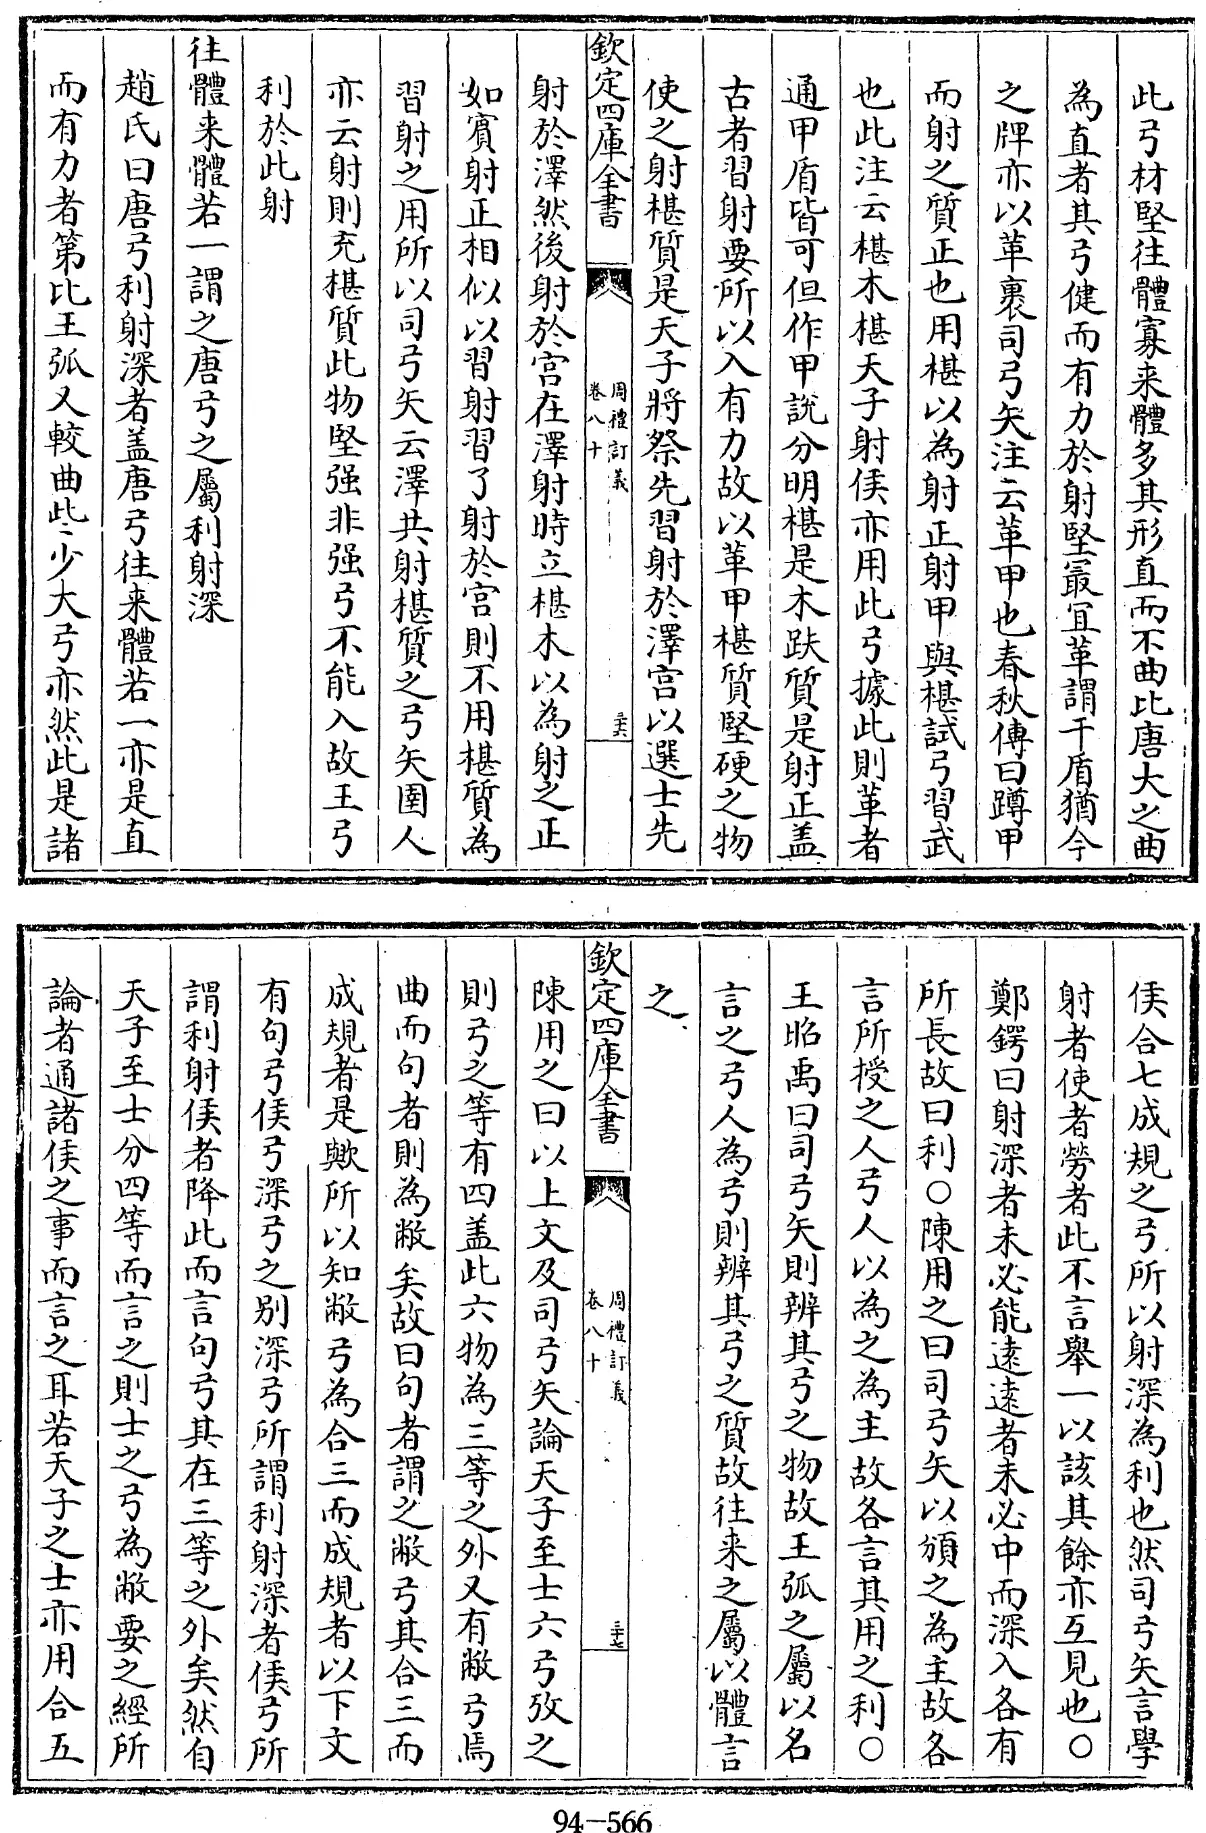 此弓材堅往體寡来體多其形直而不曲比唐大之曲
為直者其弓健而有力於射堅㝡宜革謂干盾猶今
之牌亦以革裹司弓矢注云革甲也春秋傳曰蹲甲
而射之質正也用椹以為射正射甲與椹試弓習武
也此注云椹木椹天子射侯亦用此弓據此則革者
通甲盾皆可但作甲說分明椹是木趺質是射正盖
古者習射要所以入有力故以革甲椹質堅硬之物
使之射椹質是天子將祭先習射於澤宫以選士先
欽定四庫全書
周禮訂義
卷八十
三十六
射於澤然後射於宫在澤射時立椹木以為射之正
如賔射正相似以習射習了射於宫則不用椹質為
習射之用所以司弓矢云澤共射椹質之弓矢圉人
亦云射則充椹質此物堅强非强弓不能入故王弓
利於此射
往體来體若一謂之唐弓之屬利射深
趙氏曰唐弓利射深者盖唐弓往来體若一亦是直
而有力者第比王弧又較曲些少大弓亦然此是諸
侯合七成規之弓所以射深為利也然司弓矢言學
射者使者勞者此不言舉一以該其餘亦互見也○
鄭鍔曰射深者未必能遠遠者未必中而深入各有
所長故曰利○陳用之曰司弓矢以頒之為主故各
言所授之人弓人以為之為主故各言其用之利○
王昭禹曰司弓矢則辨其弓之物故王弧之屬以名
言之弓人為弓則辨其弓之質故往来之屬以體言
之
欽定四庫全書
周禮訂義
卷八十
三十七
陳用之曰以上文及司弓矢論天子至士六弓攷之
則弓之等有四盖此六物為三等之外又有敝弓焉
曲而句者則為敝矣故曰句者謂之敝弓其合三而
成規者是歟所以知敝弓為合三而成規者以下文
有句弓侯弓深弓之别深弓所謂利射深者侯弓所
謂利射侯者降此而言句弓其在三等之外矣然自
天子至士分四等而言之則士之弓為敝要之經所
論者通諸侯之事而言之耳若天子之士亦用合五
94-566